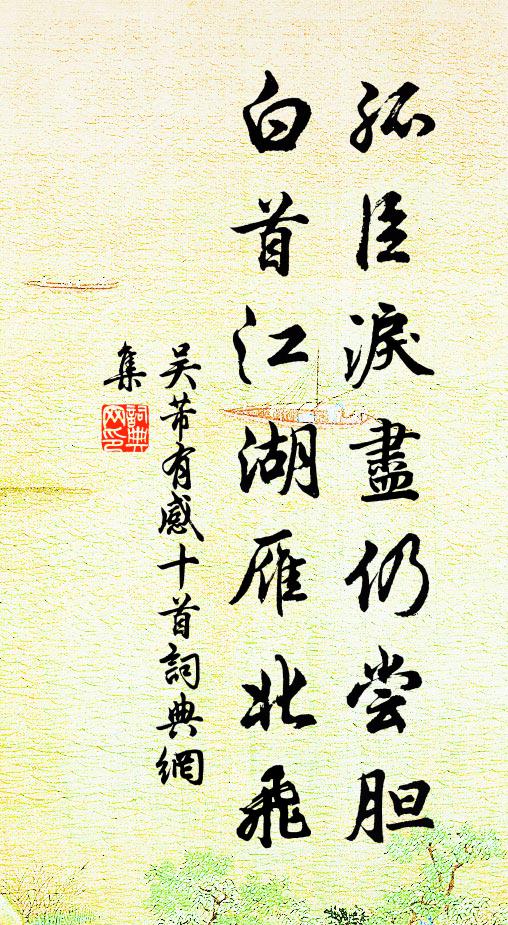 孤臣淚盡仍尝胆
白首江湖雁北飛
吴芾有感十首詞典網
集
詞典網印